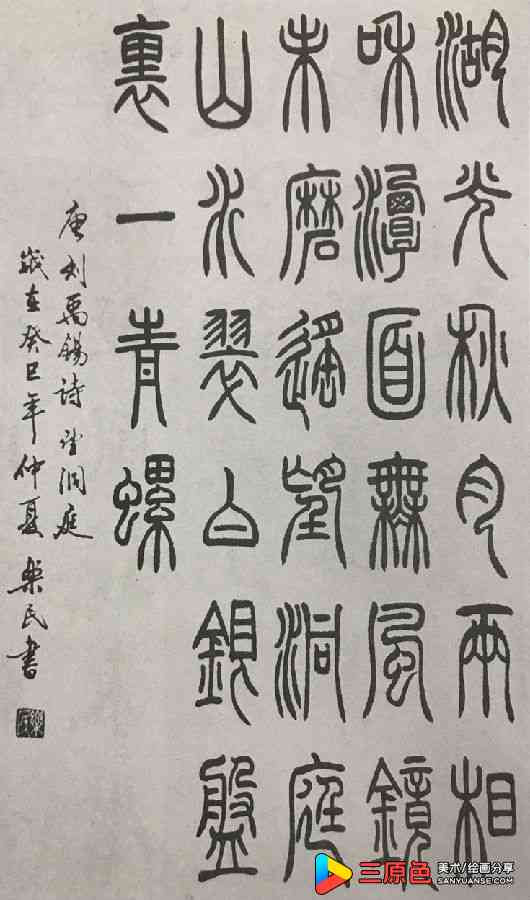 湖光秋月兩相
和潭面無風鏡
未磨遙望洞庭
山水翠白銀盤
裏一青螺
唐刘禹錫詩望洞庭
歲在癸巳年仲夏 樂民書
三原色
美术/绘画分享
SANYUANSE.COM